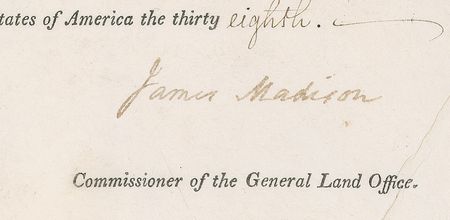 tates of America the thirty eighth.
James Madison
Commissioner of the General Land Office.